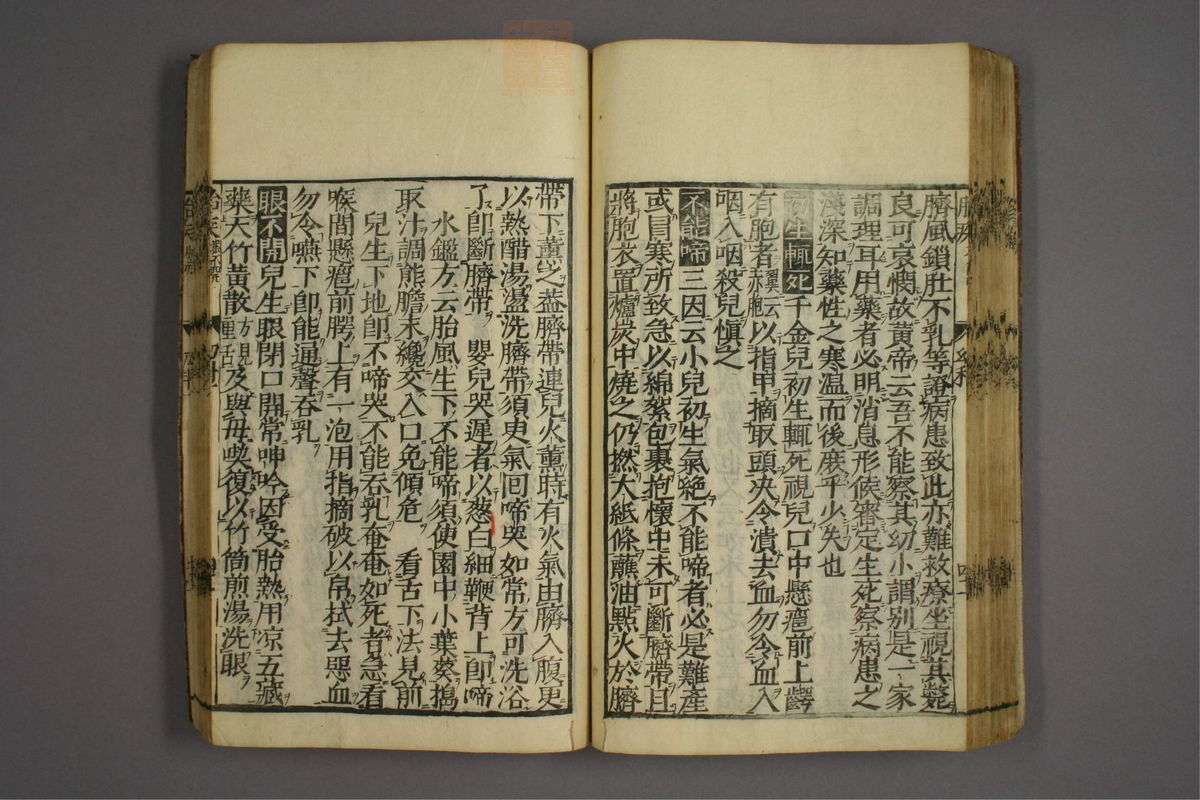 臍風鎖肚不乳等證病患致此亦難救療坐視其斃
良可哀憫故黃帝云吾不能察其幼小謂別是一家
調理耳用藥者必明消息形候審定生死察病患之
淺深知藥性之寒温而後庶乎少失也
初生輒死千金兒初生輒死視兒口中懸癰前上齶
有胞者翼云赤胞以指甲摘取頭決令潰去血勿令血入
咽入咽殺兒愼之
不能啼三因云小兒初生氣絶不能啼者必是難產
或冒寒所致急以綿絮包裹抱懷中未可斷臍帶且
將胞衣置爐炭中燒之仍撚大紙條蘸油點火於臍
帶下薰之盖臍帶連兒火薰時有火氣由臍入腹更
以熱醋湯盪洗臍帶須史氣回啼哭如常方可洗浴
了卽斷臍帶 嬰兒哭遲者以葱白細鞭背上卽啼
水鑑方云胎風生下不能啼須使園中小葉葵搗
取汁調熊膽末纔交入口免傾危 看舌下法見前
兒生下地卽不啼哭不能呑乳奄奄如死者急看
喉間懸癰前腭上有一泡用指摘破以帛拭去惡血
勿令嚥下卽能通聲呑乳
眼不開兒生眼閉口開常呻吟因受胎熱用凉五藏
藥天竹黃散方見重舌及與母喫復以竹筒煎湯洗眼